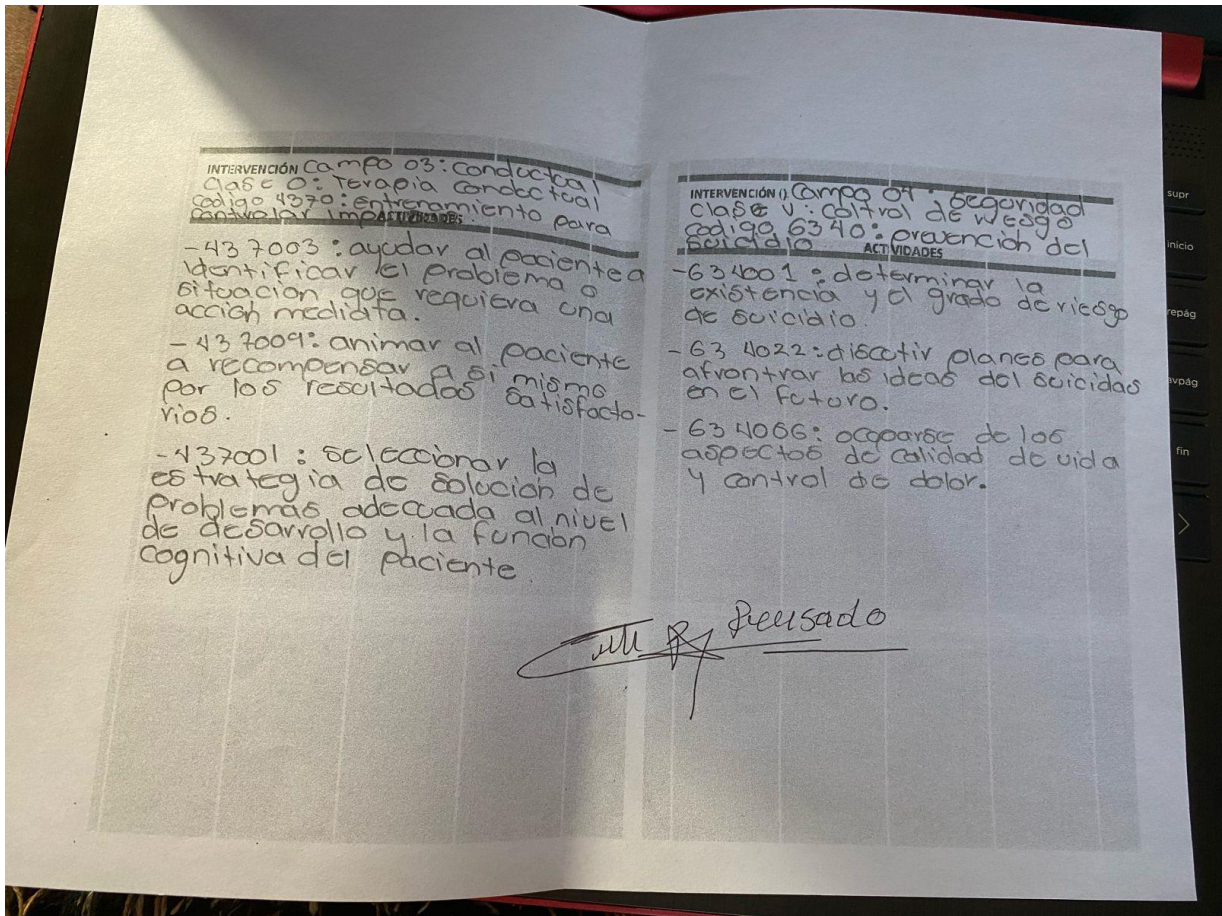 INTERVENCIÓN Campo 03: conductual
clase O: Terapia conductual
codigo 4370: entrenamiento para
controlar
ACTIVIDADES
-437003: ayudar al paciente a
identificar el problema o
situación que requiera una
acción mediata.
-437009: animar al paciente
a recompensar a si mismo
por los resultados satisfacto-
rios.
-437001: seleccionar la
estrategia de solución de
problemas adecuada al nivel
de desarrollo y la función
cognitiva del paciente.
INTERVENCIÓN(): Campo 04: seguridad
clase V: coltrol de riesgo
codigo 6340: prevención del
suicidio
ACTIVIDADES
-634001: determinar la
existencia y el grado de riesgo
de suicidio.
-634022: discutir planes para
afrontrar las ideas del suicidas
en el futuro.
-634066: ocuparse de los
aspectos de calidad de vida
y control de dolor.
supr
inicio
repág
avpág
fin